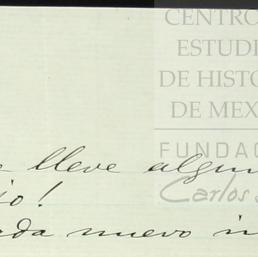 CENTRO
ESTUDI
DE HISTO
DE MEX
FUNDAC
Carlos
lleve algun
io!
da nuevo in